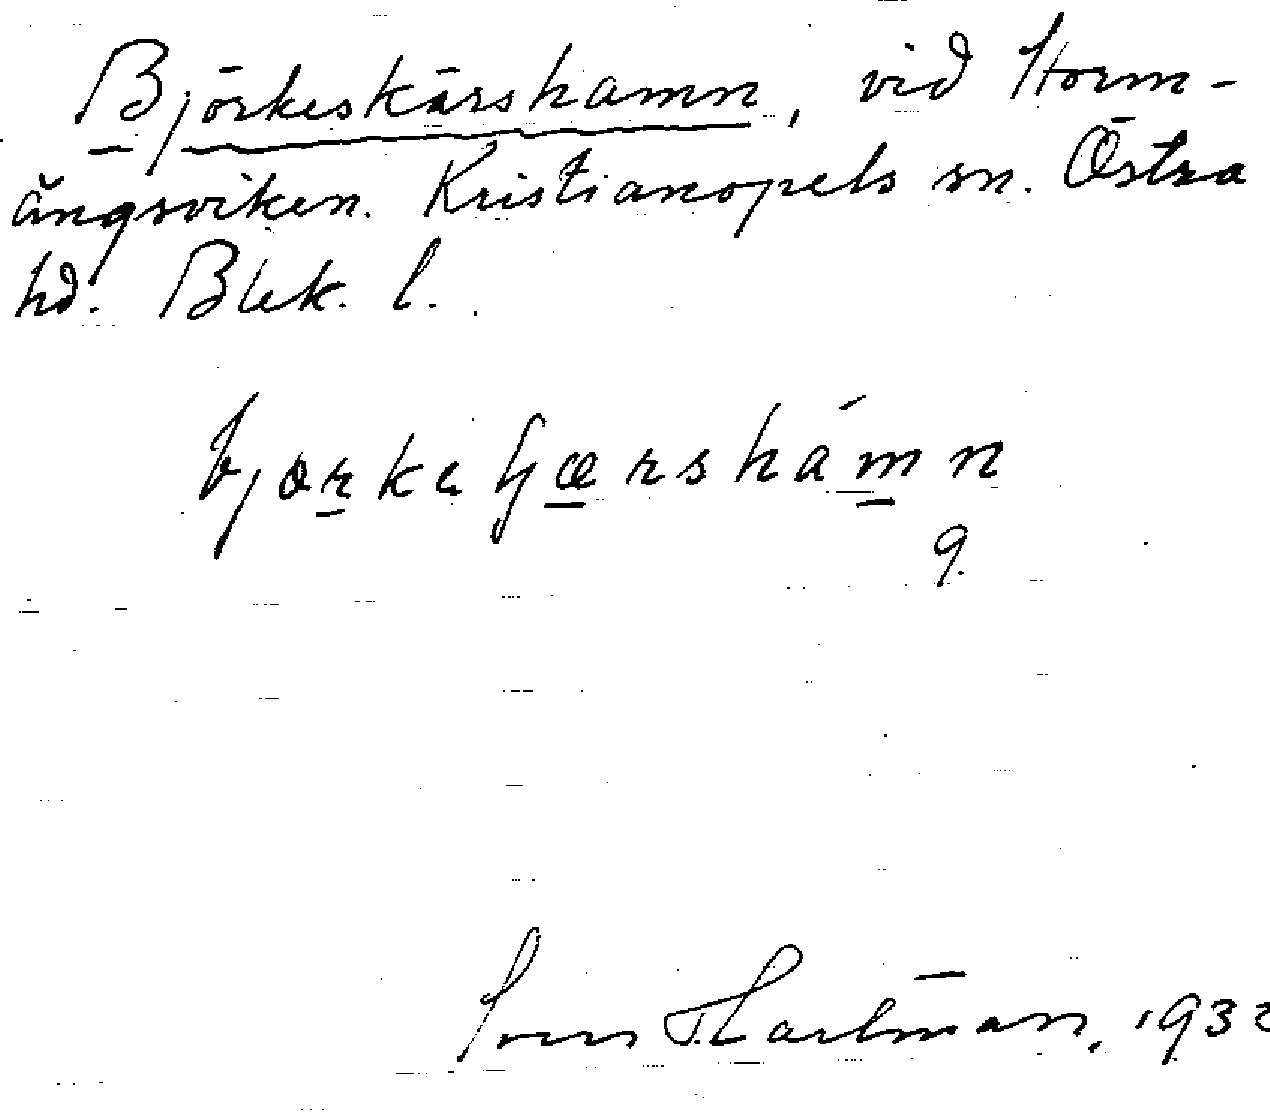 Björkeskärshamn, vid Storm-
ängsviken. Kristianopels sn. Östra
hd. Blek. l.
bjørkeʃjærshámn
q.
Sven Hartman, 1932